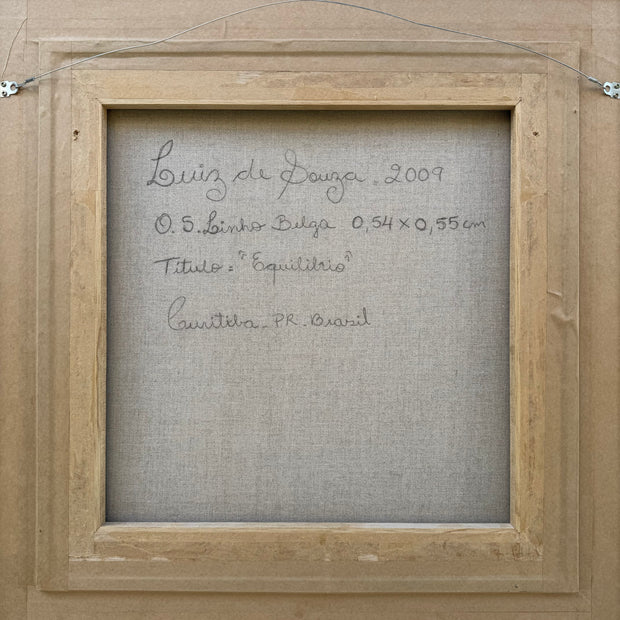 Luiz de Souza. 2009
O. S. Linho Belga 0,54 x 0,55 cm
Título = "Equilíbrio"
Curitiba - PR - Brasil